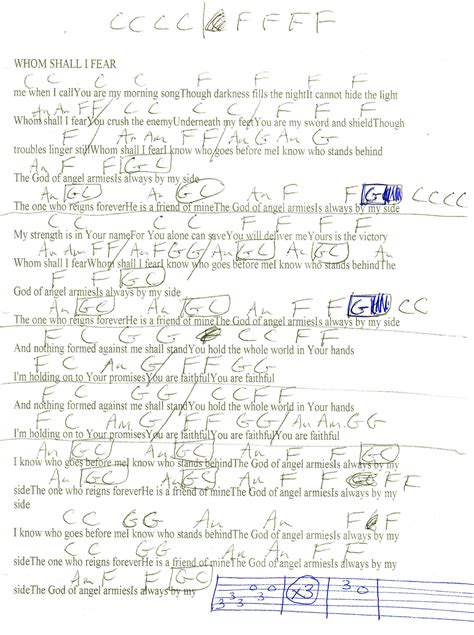 C C C C / F F F F
WHOM SHALL I FEAR
C C C C F F F F
me when I callYou are my morning songThough darkness fills the nightIt cannot hide the light
Am Am F F / C C C C / F F F F
Whom shall I fearYou crush the enemyUnderneath my feetYou are my sword and shieldThough
F Am Am F F / Am G Am G
troubles linger stillWhom shall I fearI know who goes before meI know who stands behind
Am F F GC
The God of angel armiesIs always by my side
Am GC Am GC Am F F G C C C C
The one who reigns foreverHe is a friend of mineThe God of angel armiesIs always by my side
C C C C F F F F
My strength is in Your nameFor You alone can saveYou will deliver meYours is the victory
Am Am F F / Am F G G / Am GC Am GC Am
Whom shall I fearWhom shall I fearI know who goes before meI know who stands behindThe
F F GC
God of angel armiesIs always by my side
Am GC Am GC Am F F G C C
The one who reigns foreverHe is a friend of mineThe God of angel armiesIs always by my side
F C G G C C F F
And nothing formed against me shall standYou hold the whole world in Your hands
F C Am G F F G G
I'm holding on to Your promisesYou are faithfulYou are faithful
F C G G / C C F F
And nothing formed against me shall standYou hold the whole world in Your hands
F C Am G / F F G G / Am Am G G
I'm holding on to Your promisesYou are faithfulYou are faithfulYou are faithful
Am GC Am GC Am F F GC
I know who goes before meI know who stands behindThe God of angel armiesIs always by my
Am GC Am GC Am F F F
sideThe one who reigns foreverHe is a friend of mineThe God of angel armiesIs always by my
side
C C G G Am Am F F
I know who goes before meI know who stands behindThe God of angel armiesIs always by my
C C G G Am Am F F
sideThe one who reigns foreverHe is a friend of mineThe God of angel armiesIs always by my
Am F F GC
sideThe God of angel armiesIs always by my
3 3 3 0 3 0 x3 3 0